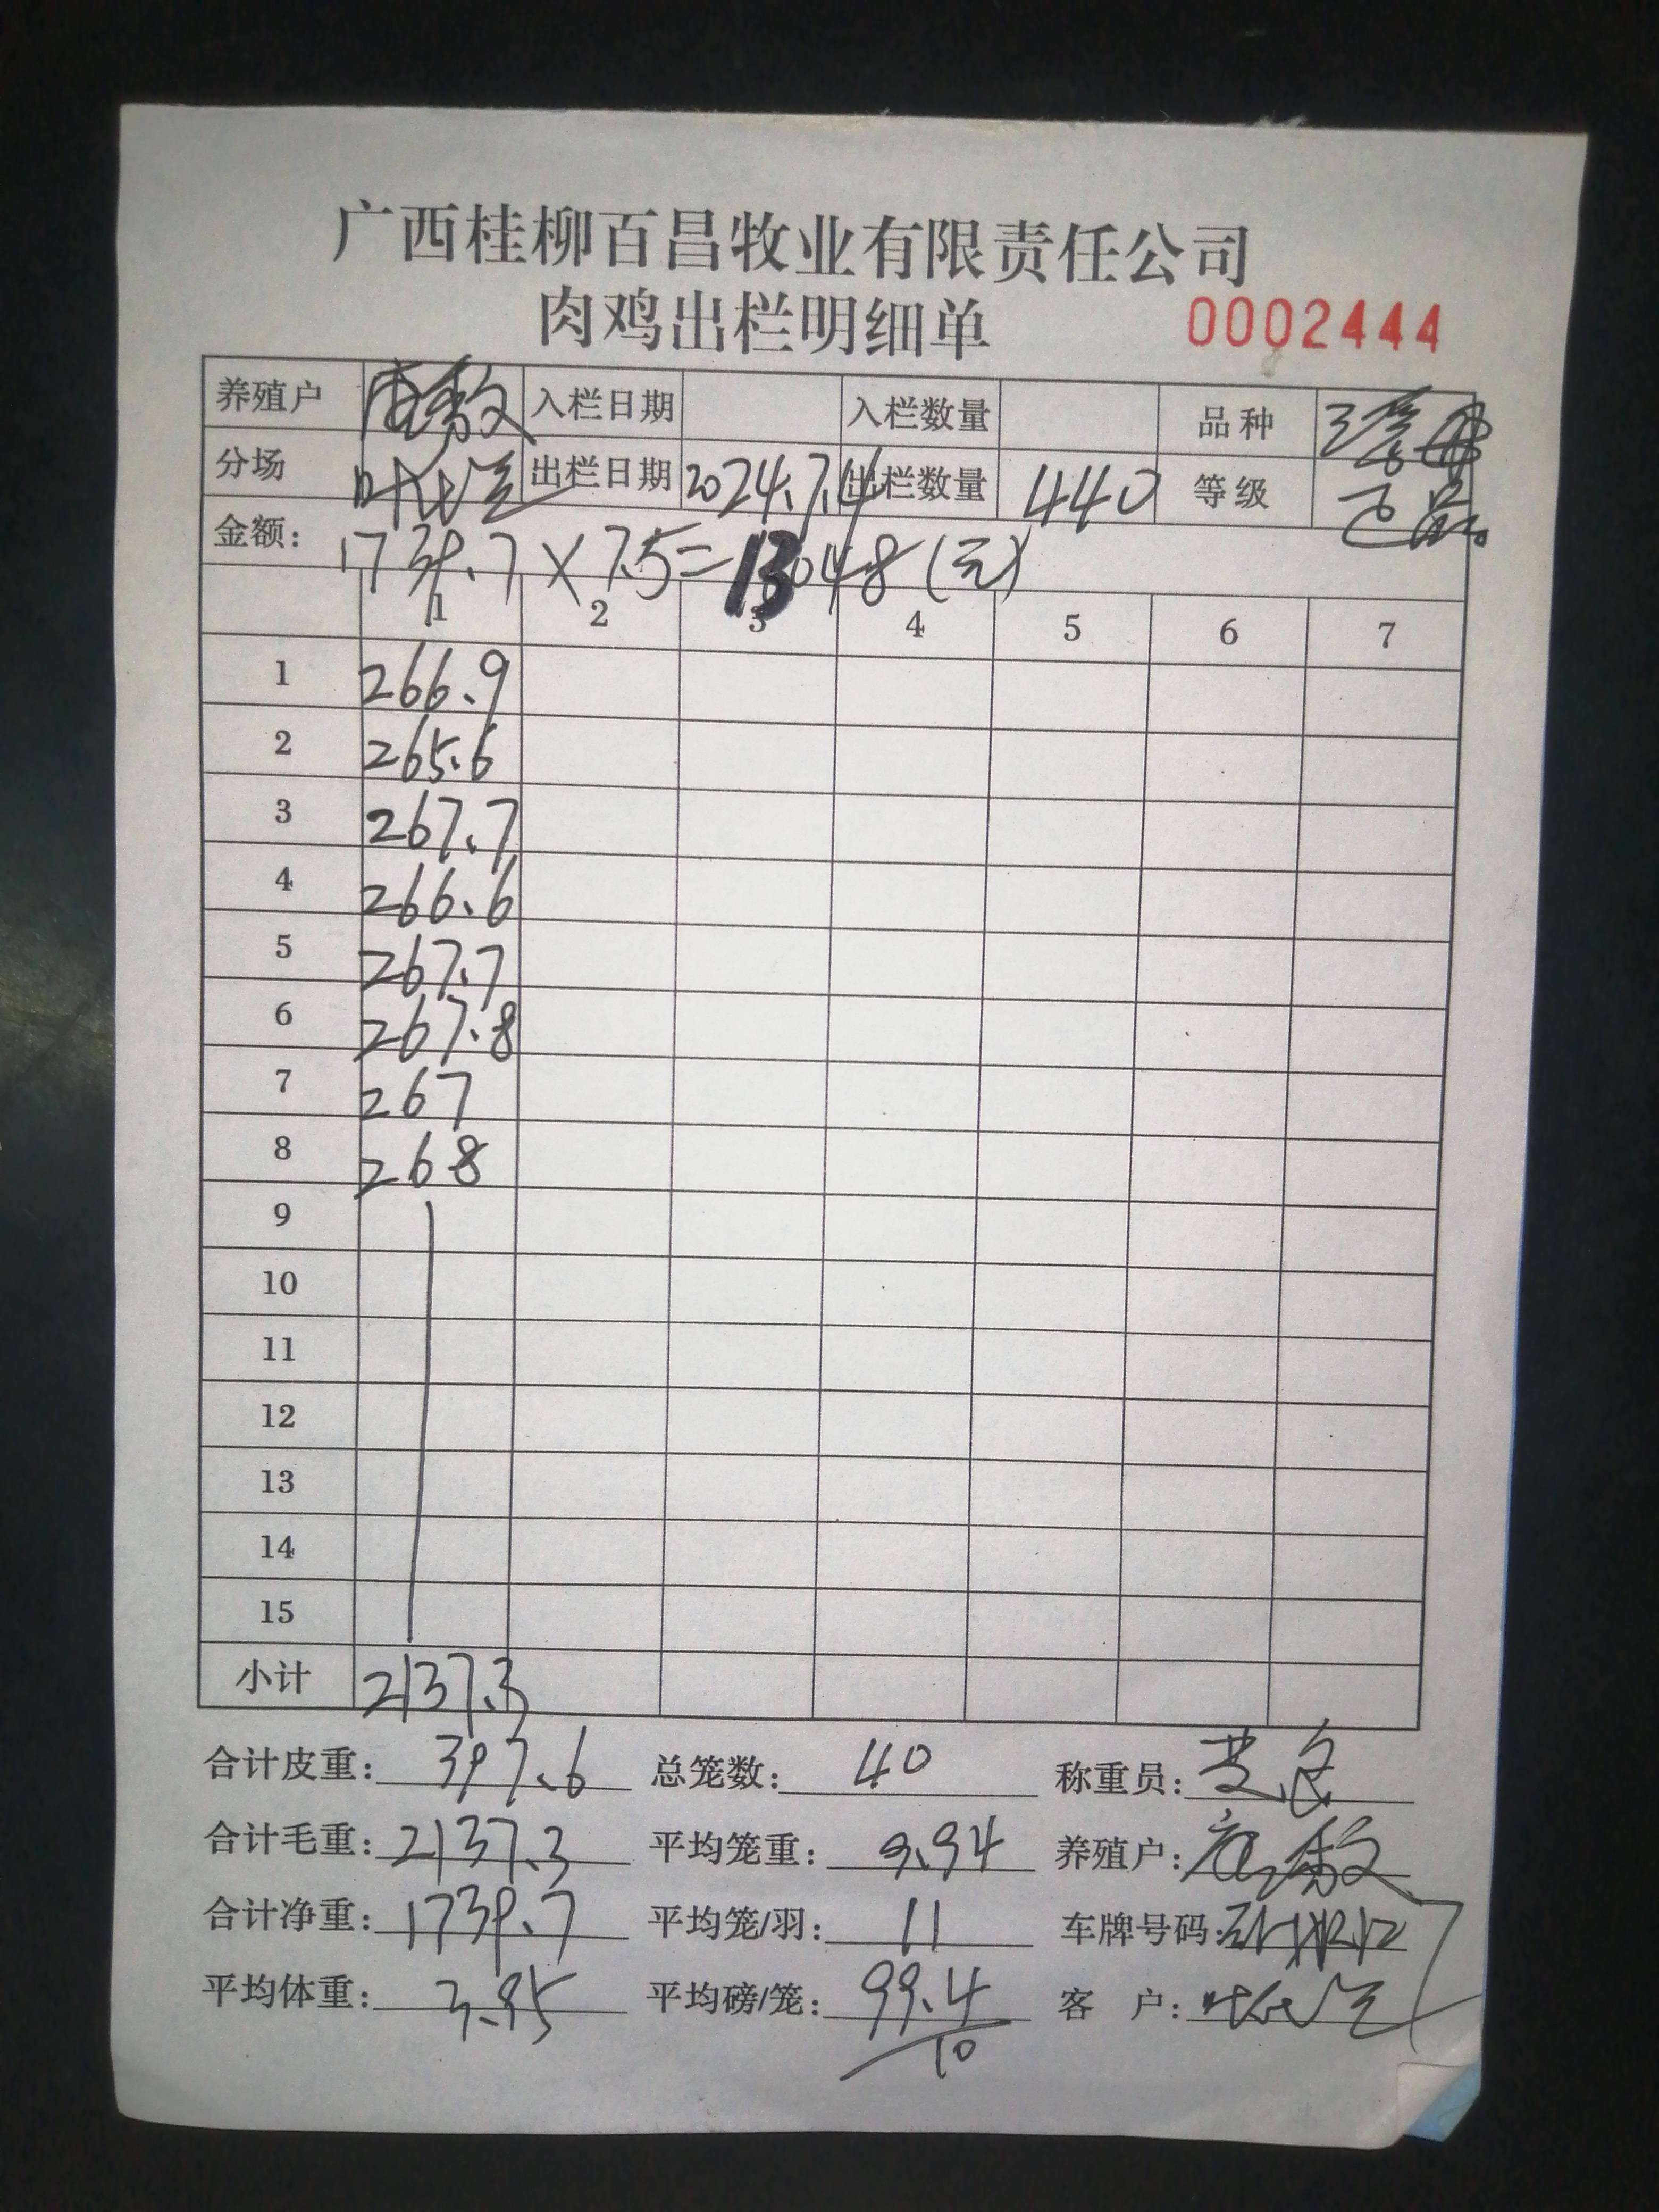 广西桂柳百昌牧业有限责任公司
肉鸡出栏明细单 0002444
养殖户 入栏日期 入栏数量 品种
分场 出栏日期 2024.7.4 出栏数量 440 等级
金额: 1739.7×7.5=13048(元)
1 2 3 4 5 6 7
1 266.9
2 265.6
3 267.7
4 266.6
5 267.7
6 267.8
7 267
8 268
9
10
11
12
13
14
15
小计 2137.3
合计皮重: 397.6 总笼数: 40 称重员:
合计毛重: 2137.3 平均笼重: 9.94 养殖户:
合计净重: 1739.7 平均笼/羽: 11 车牌号码:
平均体重: 3.95 平均磅/笼: 99.4 客 户:
10